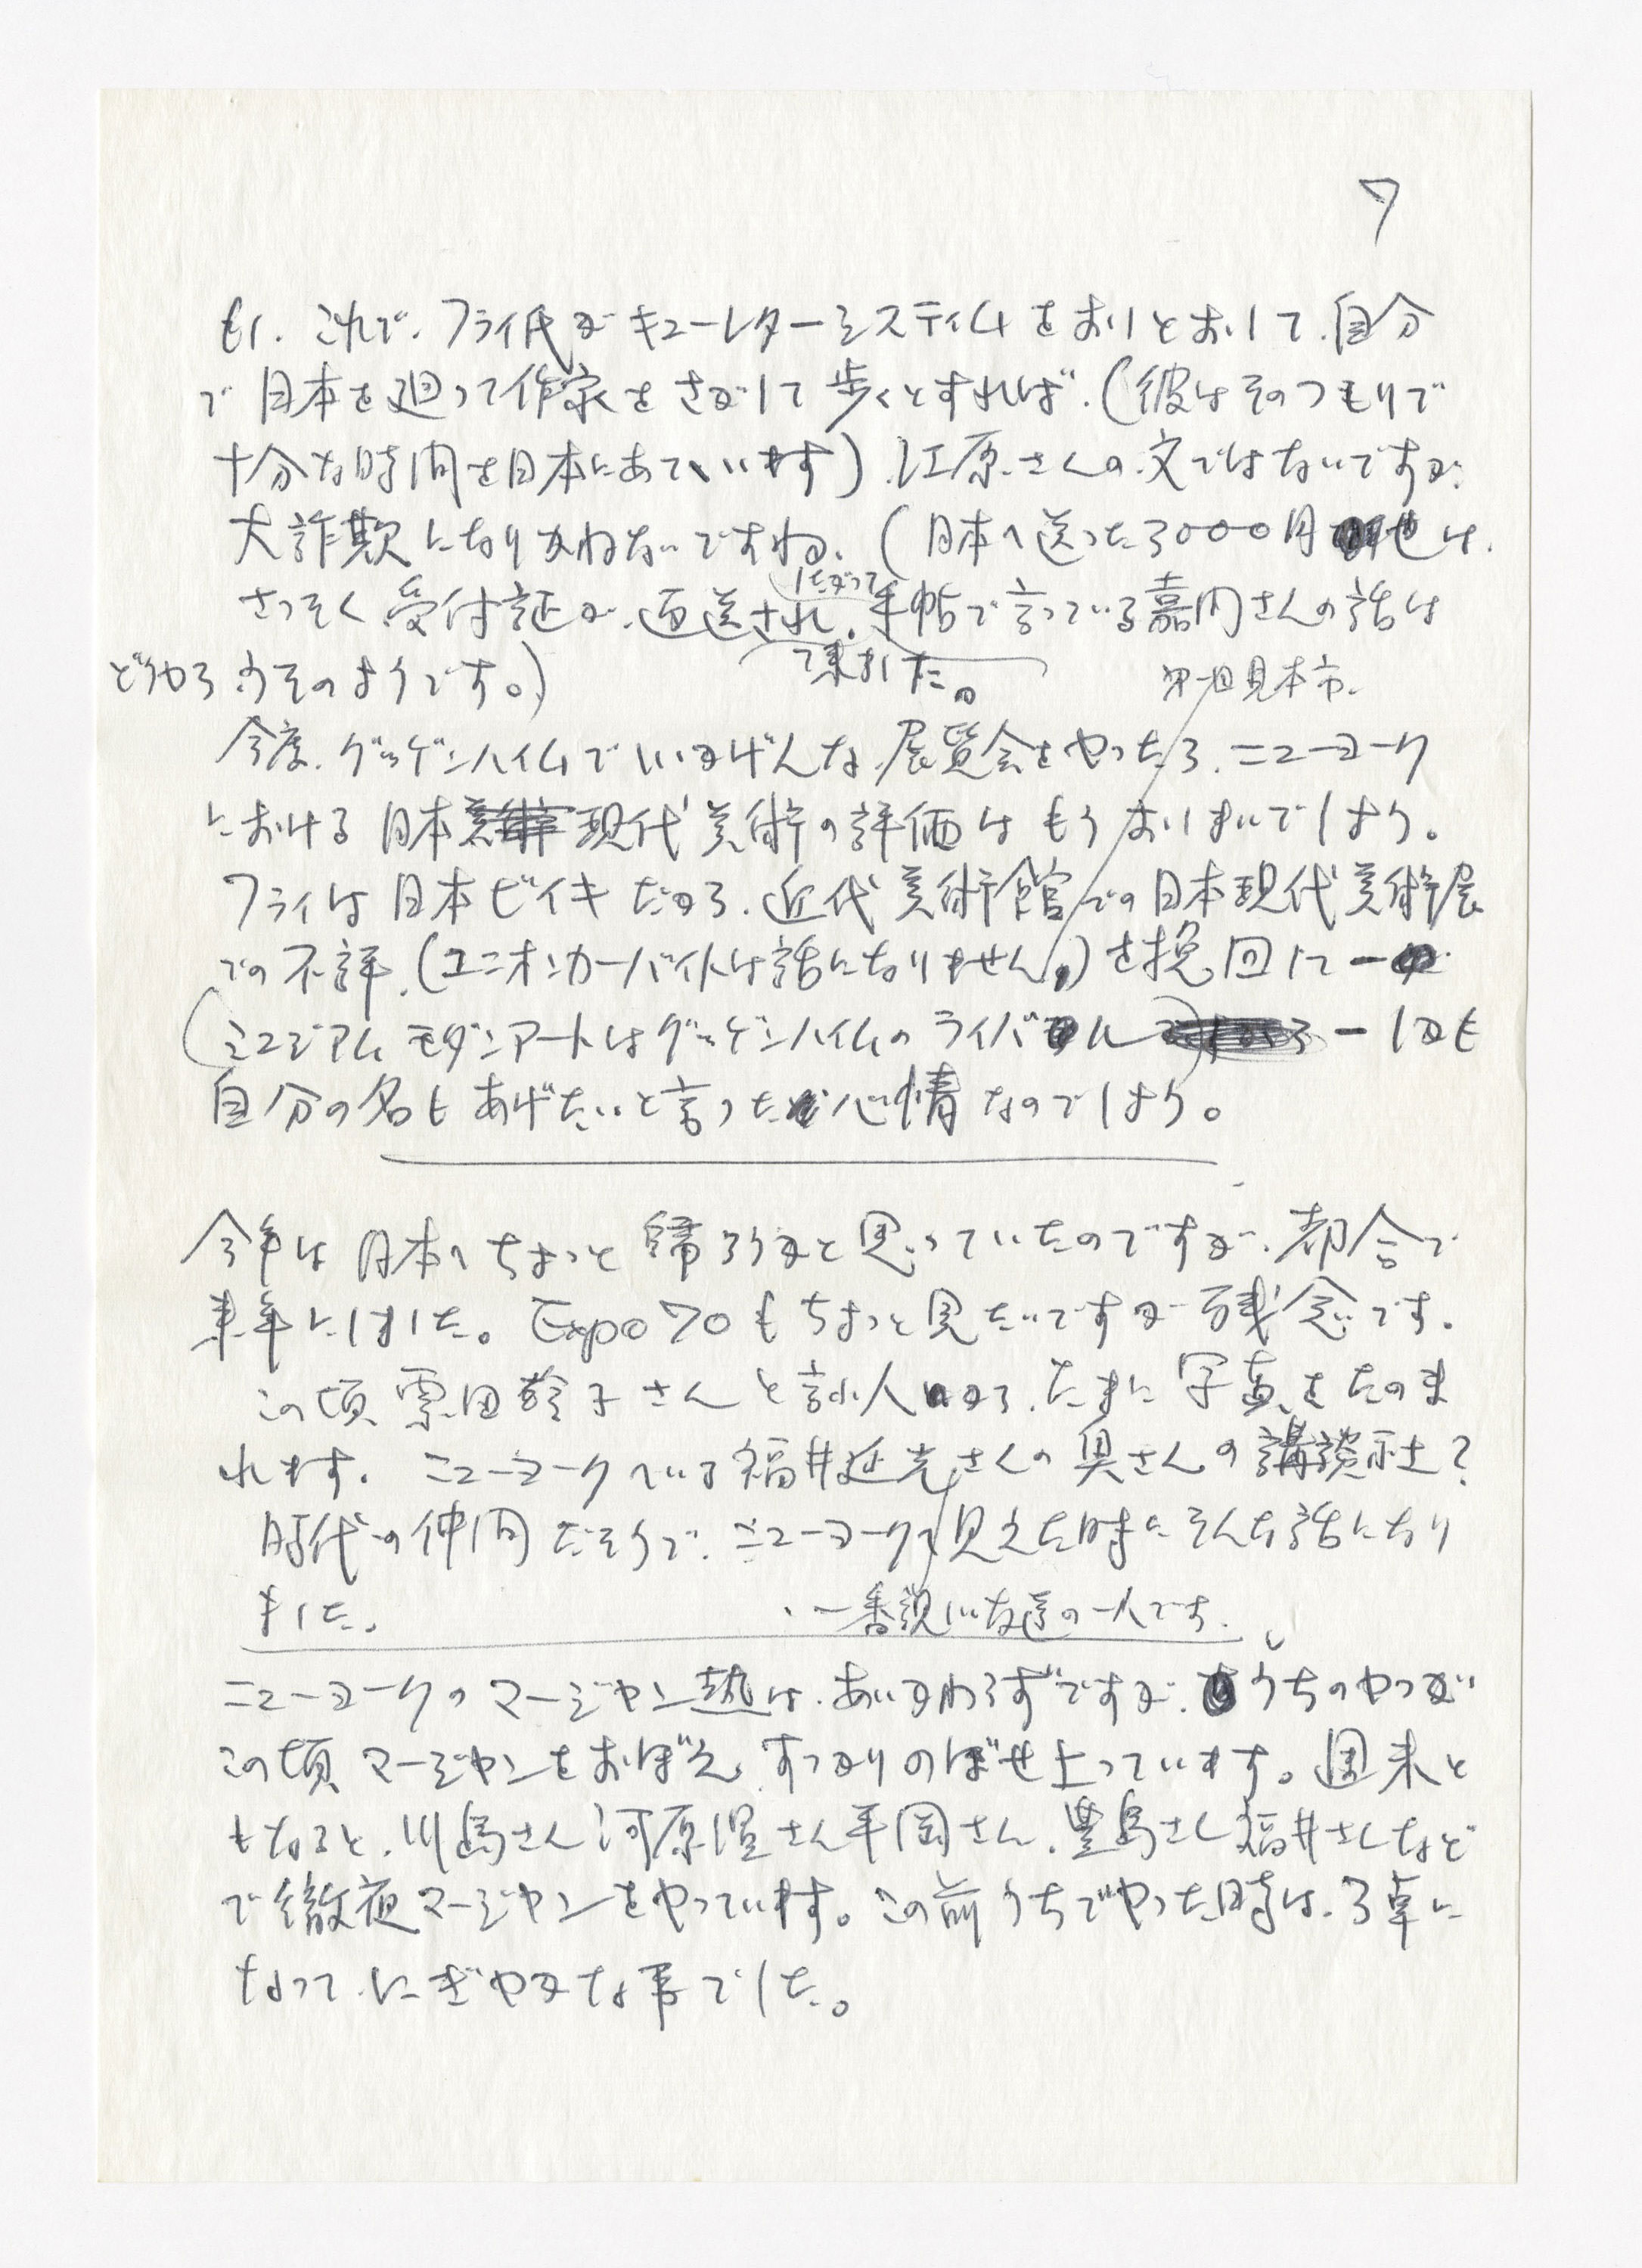 7
もし、これで、フライ氏がキューレターシスティムをおしとおして、自分
で日本を廻って作家をさがして歩くとすれば、(彼はそのつもりで
十分な時間を日本にあてています)、江原さんの文ではないですが、
大詐欺になりかねないですね。(日本へ送った3000円也は、
さっそく受付証が、返送され、手帖で言っている嘉門さんの話は
したがって
て来ました。
どうやらうそのようです。)
第一回見本市、
今度、グッゲンハイムでいいかげんな、展覧会をやったら、ニューヨーク
における日本美術現代美術の評価はもうおしまいでしょう。
フライは日本ビイキだから、近代美術館での日本現代美術展
での不評、(ユニオンカーバイトは話になりません。)を挽回して一
(ミュジアムモダンアートはグッゲンハイムのライバル)ーしかも
自分の名もあげたいと言った心情なのでしょう。
今年は日本へちょっと帰ろうかと思っていたのですが、都合で
来年にしました。Expo 70もちょっと見たいですが残念です。
この頃 子さんと言う人から、たまに写真をたのま
れます。ニューヨークへいる福井延光さんの奥さんの講談社?
時代の仲間だそうで、ニューヨークへ見えた時にそんな話になり
ました。
、一番親しい友達の一人です。
ニューヨークのマージャン熱は、あいかわらずですが、うちのやつが
この頃マージャンをおぼえ、すっかりのぼせ上っています。週末と
もなると、川島さん河原温さん平岡さん、豊島さん福井さんなど
で徹夜マージャンをやっています。この前うちでやった時は、3卓に
なって、にぎやかな事でした。